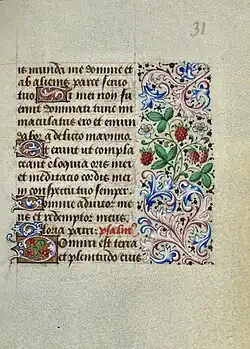 31
us munda me domine et
ab alienis parce servo
tuo Si mei non fu
erint dominati tunc im
maculatus ero et emun
dabor a delicto maximo
Et erunt ut compla
ceant eloquia oris mei
et meditatio cordis mei
in conspectu tuo semper
Domine adiutor me
us et redemptor meus
Gloria patri psalmus
Domini est terra
et plenitudo eius